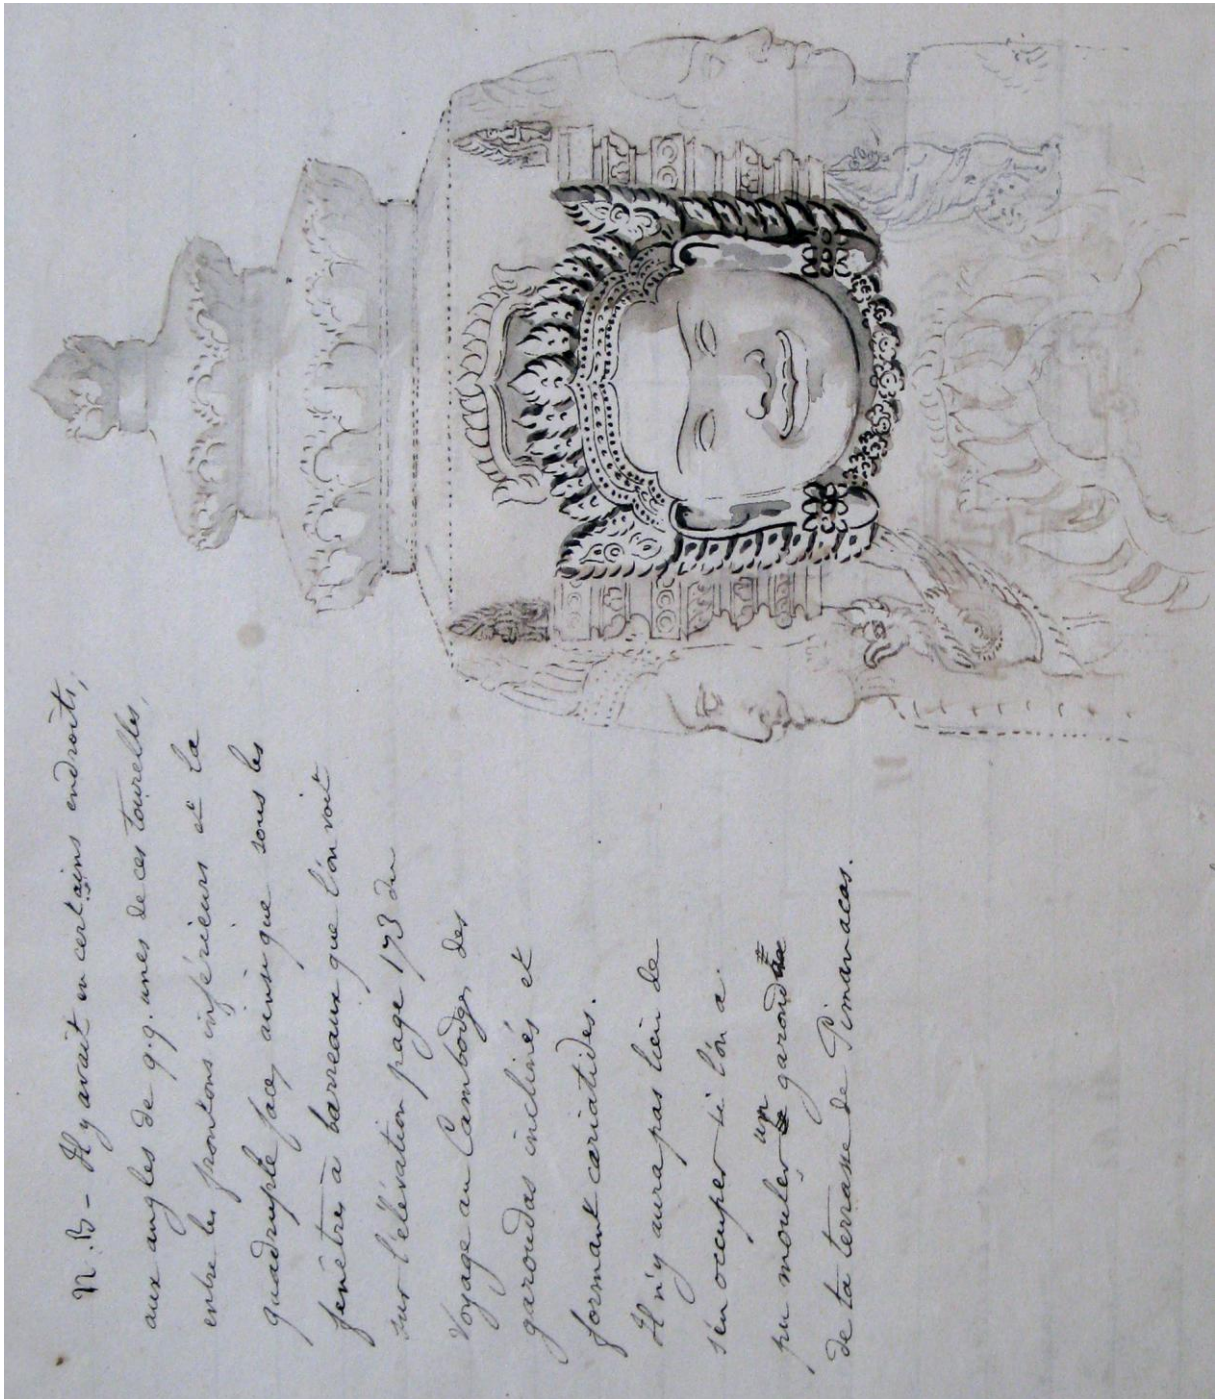 N.B - Il y avait en certains endroits,
aux angles de q.q. unes de ces tourelles,
entre les frontons inférieurs et la
quadruple face, ainsi que sous les
fenêtres à barreaux que l'on voit
sur l'élévation page 173 du
Voyage au Cambodge, des
garoudas inclinés et
formant cariatides.
Il n'y aura pas lieu de
s'en occuper si l'on a
pu mouler un garouda
de la terrasse de Pimanacas.